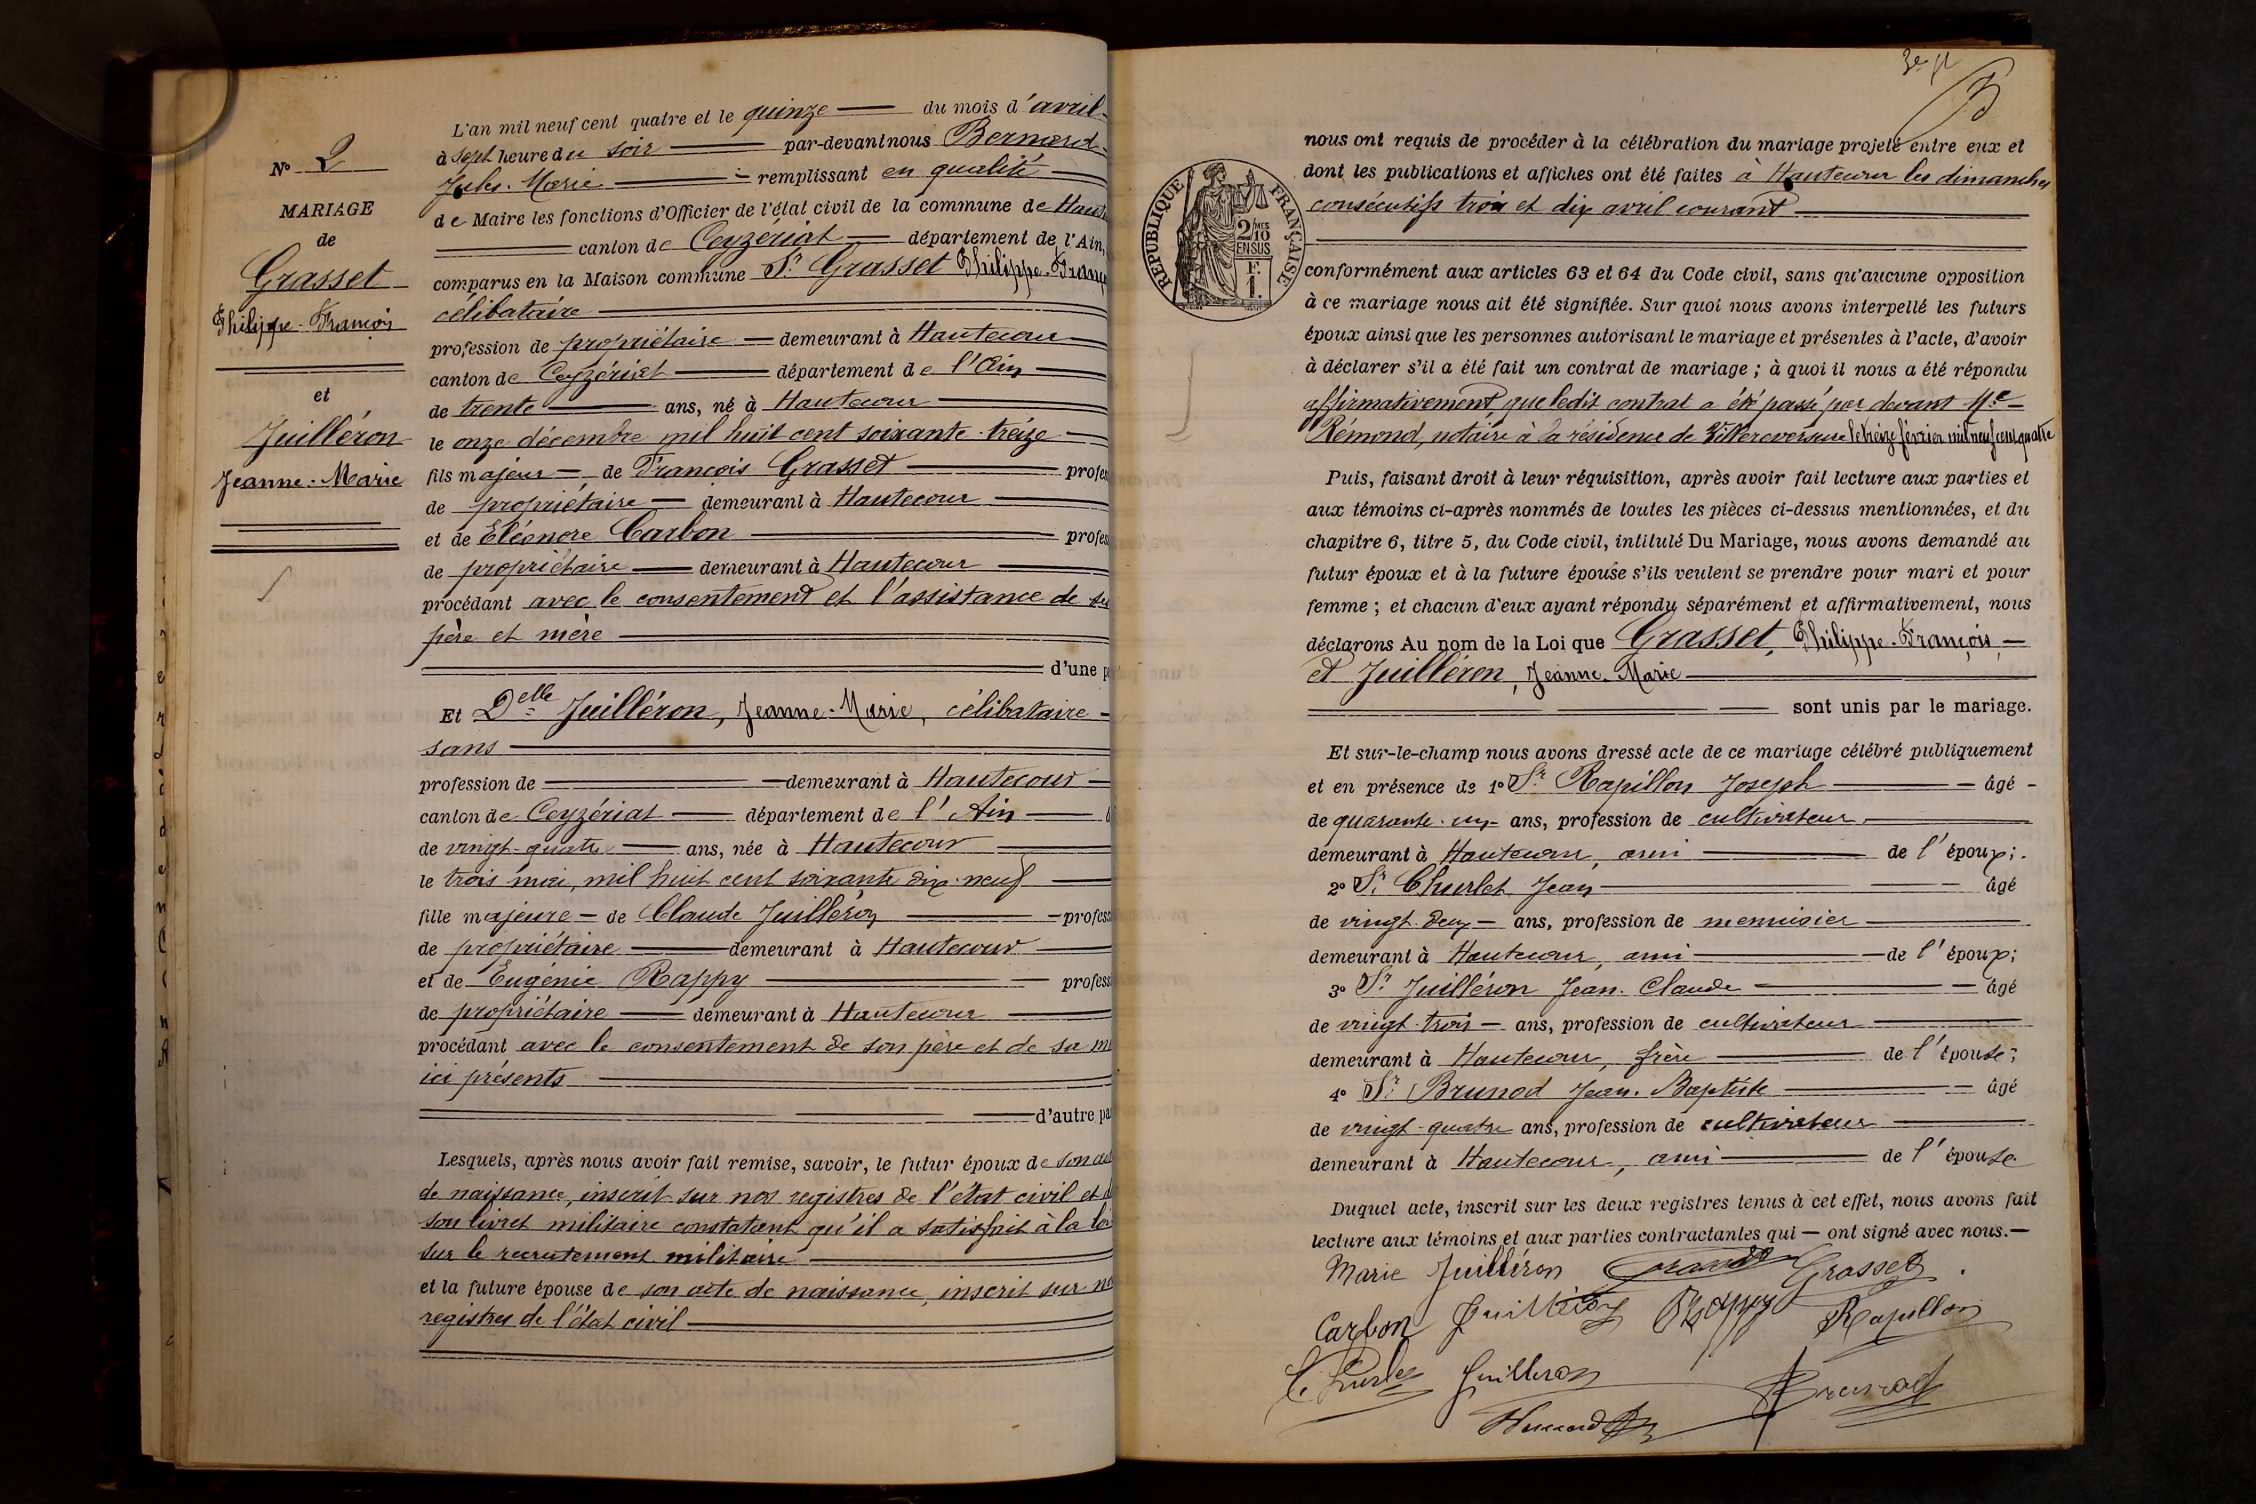 No 2
MARIAGE
de
Grasset
Philippe-François
et
Juilléron
Jeanne-Marie
L'an mil neuf cent quatre et le quinze du mois d'avril
à sept heure du soir par-devant nous Bernard
Jules-Marie remplissant en qualité
de Maire les fonctions d'Officier de l'état civil de la commune de Haute
canton de Ceyzériat département de l'Ain,
comparus en la Maison commune Sr Grasset Philippe-Franç
célibataire
profession de propriétaire demeurant à Hautecour
canton de Ceyzériat département de l'Ain
de trente ans, né à Hautecour
le onze décembre mil huit cent soixante-treize
fils majeur de François Grasset profes
de propriétaire demeurant à Hautecour
et de Eléonore Carbon profes
de propriétaire demeurant à Hautecour
procédant avec le consentement et l'assistance de ses
père et mère
d'une p
Et Delle Juilléron, Jeanne-Marie, célibataire
sans
profession de demeurant à Hautecour
canton de Ceyzériat département de l'Ain
de vingt-quatre ans, née à Hautecour
le trois mai, mil huit cent soixante dix-neuf
fille majeure de Claude Juilléron profess
de propriétaire demeurant à Hautecour
et de Eugénie Rappy profess
de propriétaire demeurant à Hautecour
procédant avec le consentement de son père et de sa m
ici présents
d'autre pa
Lesquels, après nous avoir fait remise, savoir, le futur époux de son
de naissance, inscrit sur nos registres de l'état civil et d
son livret militaire constatant qu'il a satisfait à la loi
sur le recrutement militaire
et la future épouse de son acte de naissance, inscrit sur no
registres de l'état civil
3e
nous ont requis de procéder à la célébration du mariage projeté entre eux et
dont les publications et affiches ont été faites à Hautecour les dimanches
consécutifs trois et dix avril courant
RÉPUBLIQUE FRANÇAISE
2/10 MES
EN SUS
F.
1.
conformément aux articles 63 et 64 du Code civil, sans qu'aucune opposition
à ce mariage nous ait été signifiée. Sur quoi nous avons interpellé les futurs
époux ainsi que les personnes autorisant le mariage et présentes à l'acte, d'avoir
à déclarer s'il a été fait un contrat de mariage ; à quoi il nous a été répondu
affirmativement, que ledit contrat a été passé par devant Me
Rémond, notaire à la résidence de Villereversure le treize février mil neuf cent quatre
Puis, faisant droit à leur réquisition, après avoir fait lecture aux parties et
aux témoins ci-après nommés de toutes les pièces ci-dessus mentionnées, et du
chapitre 6, titre 5, du Code civil, intitulé Du Mariage, nous avons demandé au
futur époux et à la future épouse s'ils veulent se prendre pour mari et pour
femme ; et chacun d'eux ayant répondu séparément et affirmativement, nous
déclarons Au nom de la Loi que Grasset, Philippe-François,
et Juilléron, Jeanne-Marie
sont unis par le mariage.
Et sur-le-champ nous avons dressé acte de ce mariage célébré publiquement
et en présence de 1o Sr Rapillon Joseph âgé
de quarante-un ans, profession de cultivateur
demeurant à Hautecour, ami de l'époux;
2o Sr Churlet Jean âgé
de vingt-deux ans, profession de menuisier
demeurant à Hautecour, ami de l'époux;
3o Sr Juilléron Jean-Claude âgé
de vingt-trois ans, profession de cultivateur
demeurant à Hautecour, frère de l'épouse;
4o Sr Brunod Jean-Baptiste âgé
de vingt-quatre ans, profession de cultivateur
demeurant à Hautecour, ami de l'épouse
Duquel acte, inscrit sur les deux registres tenus à cet effet, nous avons fait
lecture aux témoins et aux parties contractantes qui — ont signé avec nous.—
Marie Juilléron Grasset Grasset
Carbon Juilléron Rappy Rapillon
Churlet Juilleron Brunod
Bernard